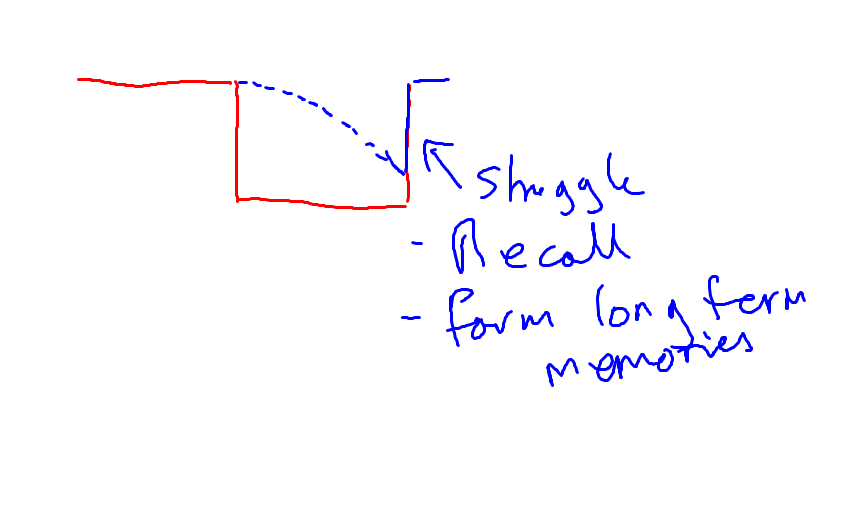 struggle
- Recall
- form long term
memories